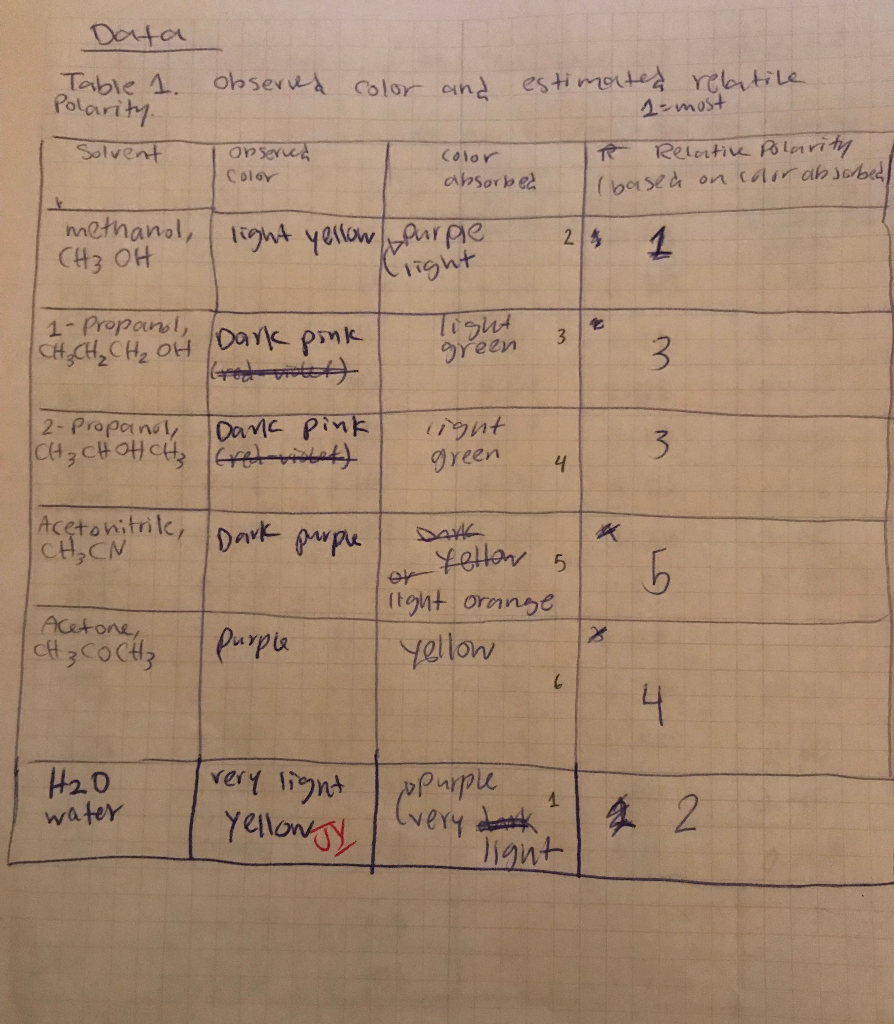 Data
Table 1. observed color and estimated relatile
Polarity. 1=most
Solvent
observed
color
color
absorbed
Relative Polarity
(based on color absorbed
methanol,
CH3 OH
light yellow
purple
(light
2
1
1-Propanol,
CH3CH2CH2 OH
Dark pink
(red-violet)
light
green
3
3
2-Propanol,
CH3CHOHCH3
Dark pink
(red-violet)
light
green
4
3
Acetonitrile,
CH3CN
Dark purple
Dark
or yellow
light orange
5
5
Acetone,
CH3COCH3
purple
yellow
6
4
H2O
water
very light
yellow
purple
(very dark
light
1
2